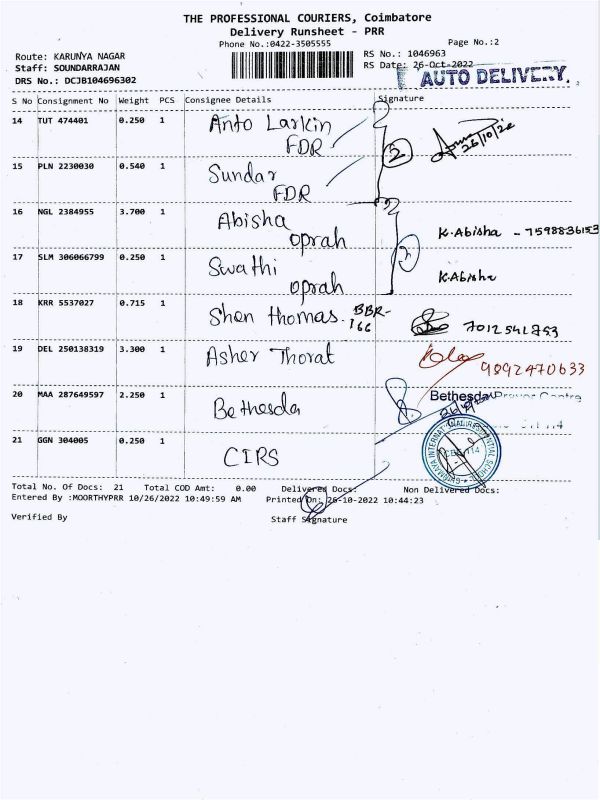 THE PROFESSIONAL COURIERS, Coimbatore
Delivery Runsheet - PRR
Phone No.:0422-3505555
Page No.:2
Route: KARUNYA NAGAR
RS No.: 1046963
Staff: SOUNDARRAJAN
RS Date: 26-Oct-2022
DRS No.: DCJB104696302
AUTO DELIVERY.
S No Consignment No Weight PCS Consignee Details Signature
14 TUT 474401 0.250 1 Anto Larkin
FDR
2
26/10/22
15 PLN 2230030 0.540 1 Sundar
FDR
16 NGL 2384955 3.700 1 Abisha
oprah
K.Abisha - 7598836153
17 SLM 306066799 0.250 1 Swathi
oprah
K.Abisha
18 KRR 5537027 0.715 1 Shen thomas. BBR-
166
7012541753
19 DEL 250138319 3.300 1 Asher Thorat
9092470633
20 MAA 287649597 2.250 1 Bethesda
Bethesda Prayer Centre
21 GGN 304005 0.250 1 CIRS
Total No. Of Docs: 21 Total COD Amt: 0.00 Delivered Docs: Non Delivered Docs:
Entered By :MOORTHYPRR 10/26/2022 10:49:59 AM Printed On: 26-10-2022 10:44:23
Verified By Staff Signature